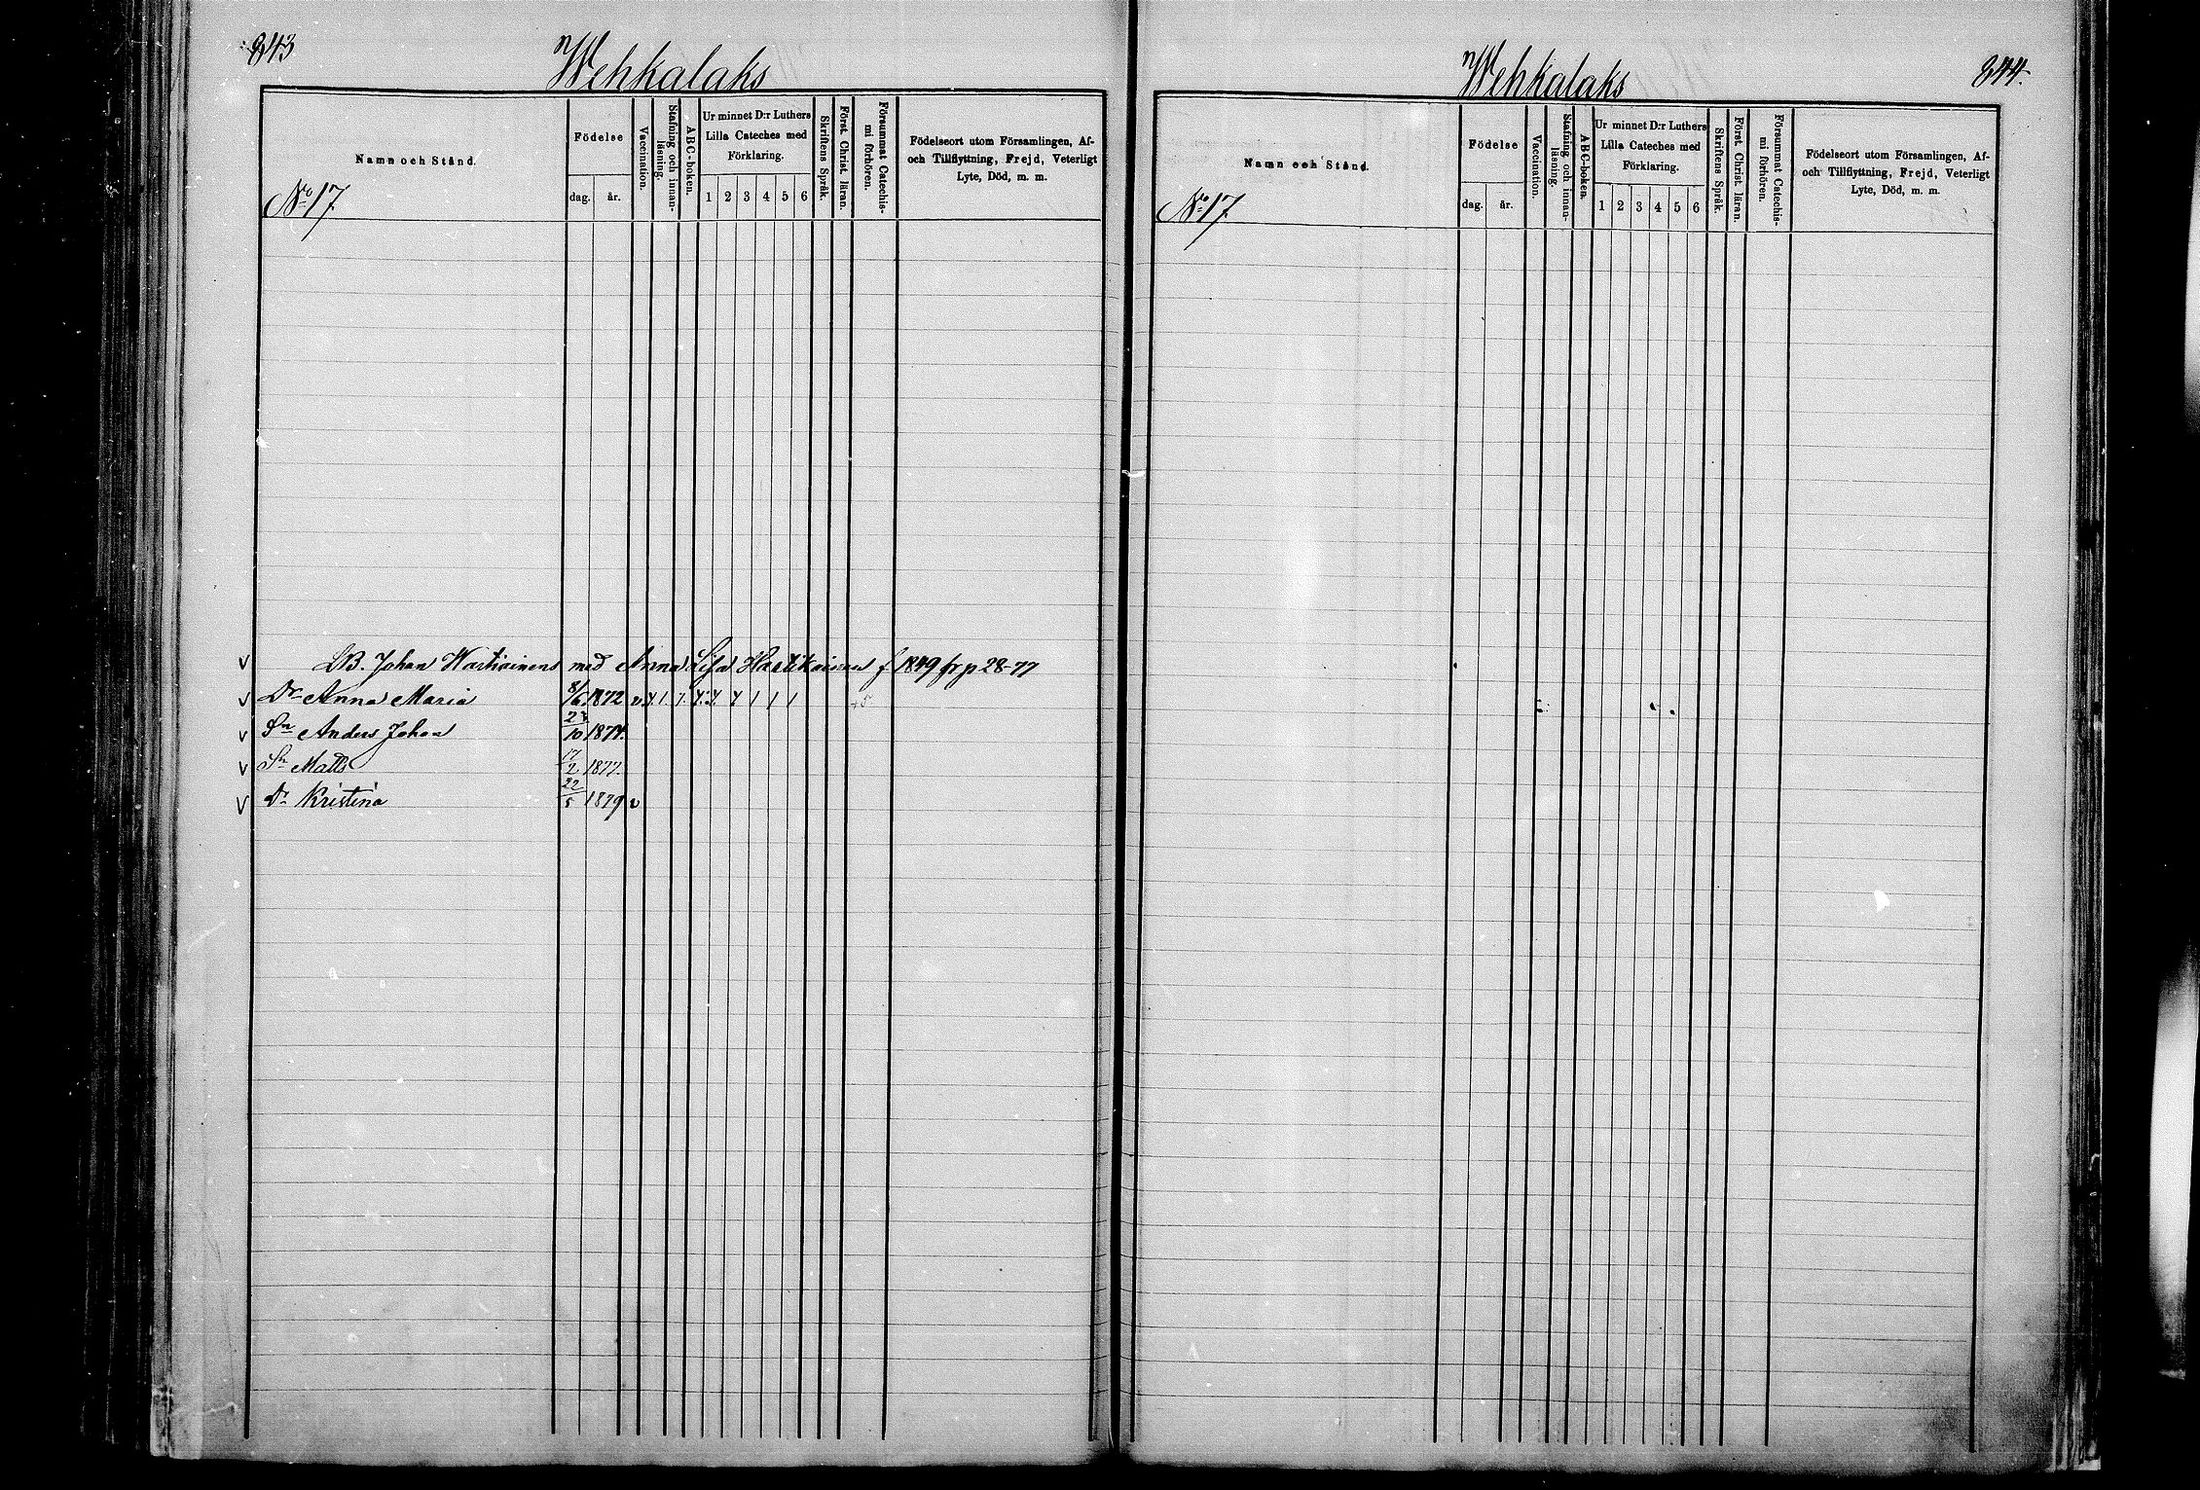 843
Wehkalaks
Namn och Stånd.
Födelse
dag. år.
Vaccination.
Stafning och innanläsning.
ABC-boken.
Ur minnet D:r Luthers Lilla Cateches med Förklaring.
1 2 3 4 5 6
Skriftens Språk.
Först. Christ. läran.
Försummat Catechismi förhören.
Födelseort utom Församlingen, Af- och Tillflyttning, Frejd, Veterligt Lyte, Död, m. m.
No 17
v Johan med Anna Lisa f 1849 fr p 28-77
v Dr Anna Maria 8/6 1872 v
v Sn Anders Johan 10
v Sn Matts 17/2 1877.
v Dr Kristina 22/5 1879 v
Wehkalaks
844.
Namn och Stånd.
Födelse
dag. år.
Vaccination.
Stafning och innanläsning.
ABC-boken.
Ur minnet D:r Luthers Lilla Cateches med Förklaring.
1 2 3 4 5 6
Skriftens Språk.
Först. Christ. läran.
Försummat Catechismi förhören.
Födelseort utom Församlingen, Af- och Tillflyttning, Frejd, Veterligt Lyte, Död, m. m.
No 17